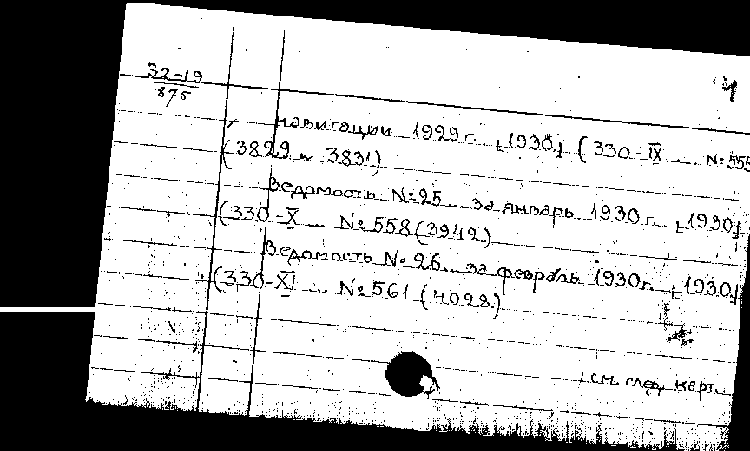 32-19
875
4
навигации 1929 г. [1930] (330-IX ... №555
(3829 и 3831)
Ведомость №25 ... за январь 1930 г. [1930]
(330-X ... №558 (3942)
Ведомость №26 ... за февраль 1930 г. [1930]
(330-XI ... №561 (4028)
см. след. карт.